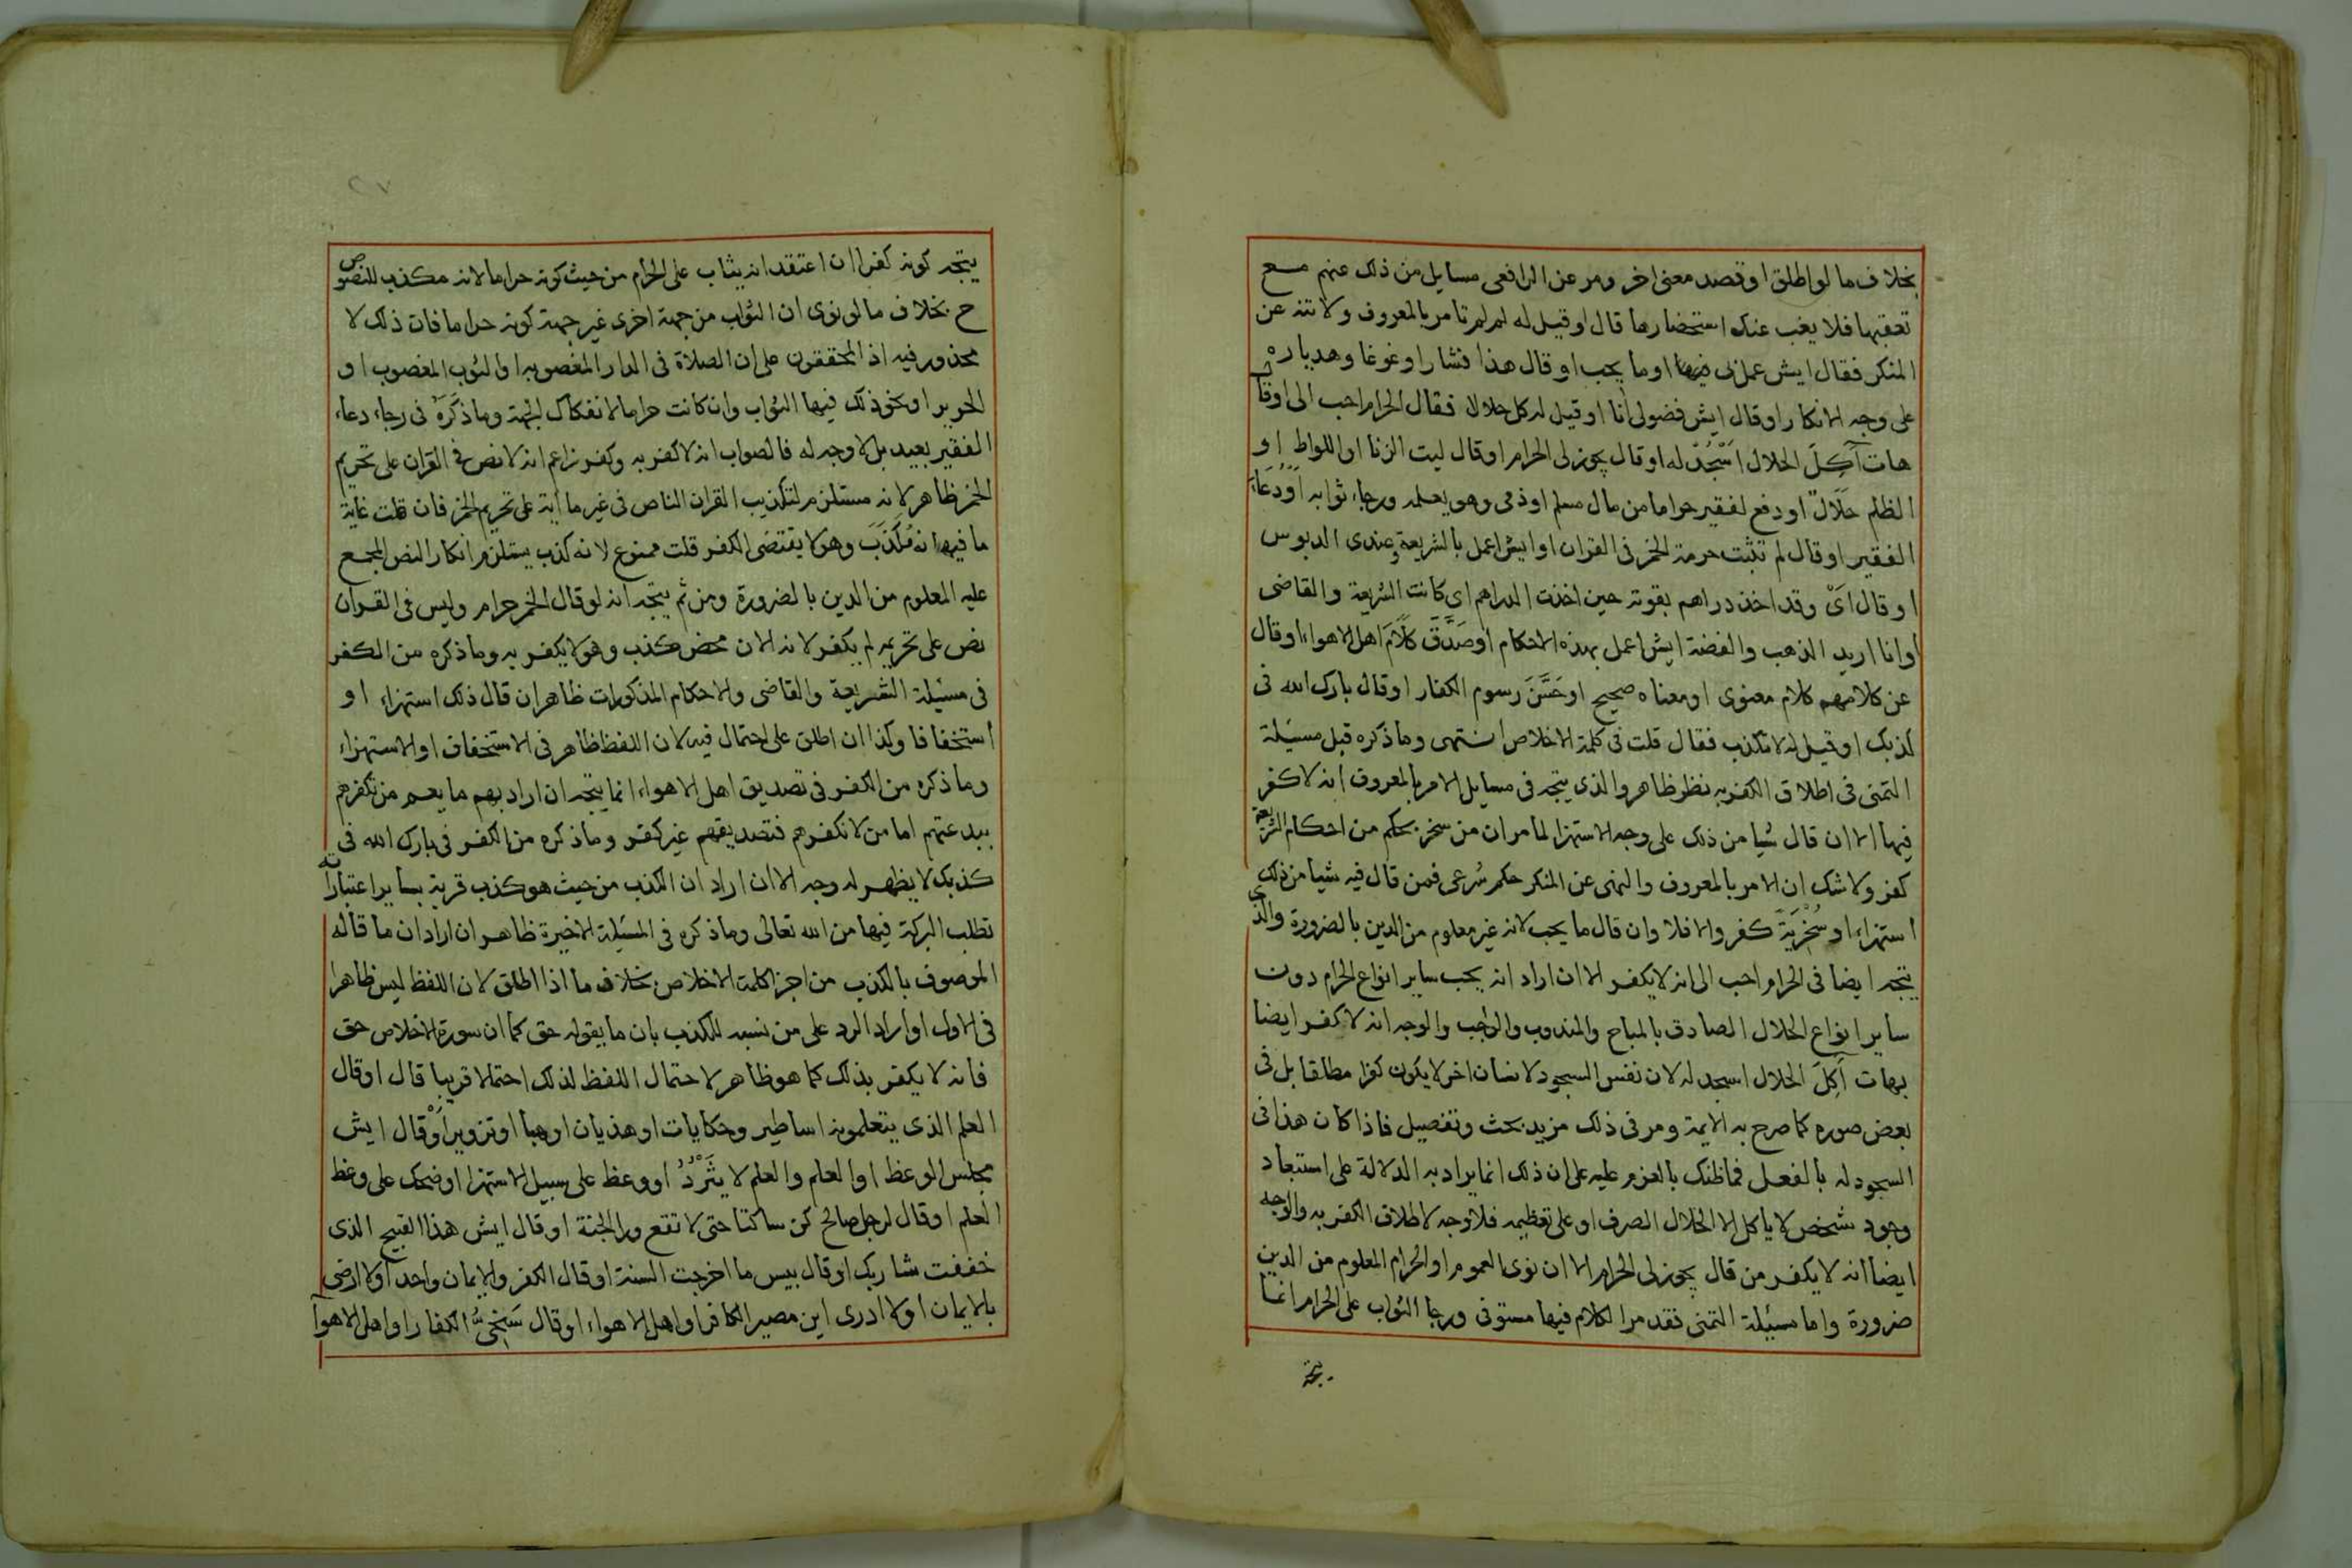 بخلاف ما لو اطلق او قصد معنى اخر ومر عن الرافعى مسايل من ذلك عنهم مع
تعقبها فلا يغب عنك استحضارها قال او قيل له لم لم تامر بالمعروف ولا تنه عن
المنكر فقال ايش عمل لى فيها او ما يجب او قال هذا فشار او غوغا وهديا ره
على وجه الانكار او قال ايش فضولى انا او قيل له كل حلالا فقال الحرام احب الى او قال
هات آكِلَ الحلال اَسْجُدُ له او قال يجوز لى الحرام او قال ليت الزنا او اللواط او
الظلم حَلَالٌ او دفع لفقير حراما من مال مسلم او ذمى وهو يعلمه ورجاء ثوابه اَوْ دُعَاءَ
الفقير او قال لم تثبت حرمة الخمر فى القران او ايش اعمل بالشريعة وعندى الدبوس
او قال اَىْ وقد اخذ دراهم بقوته حين اخذت الدراهم اى كانت الشريعة والقاضى
او انا اريد الذهب والفضة ايش اعمل بهذه الاحكام او صَدَّقَ كَلَامَ اهل الاهواء او قال
عن كلامهم كلام معنوى او معناه صحيح او حَسَّنَ رسوم الكفار او قال بارك الله فى
كذبك او قيل له لا تكذب فقال قلت فى كلمة الاخلاص انتهى وما ذكره قبل مسئلة
التمنى فى اطلاق الكفر به نظر ظاهر والذى يتجه فى مسايل الامر بالمعروف انه لا كفر
فيها الا ان قال شيا من ذلك على وجه الاستهزا لما مر ان من سخر بحكم من احكام الشريعة
كفر ولا شك ان الامر بالمعروف والنهى عن المنكر حكم شرعى فمن قال فيه شيا من ذلك
استهزاء او سُخْرِيَةً كفر والا فلا وان قال ما يجب لانه غير معلوم من الدين بالضرورة والذى
يتجه ايضا فى الحرام احب الى انه لا يكفر الا ان اراد انه يحب ساير انواع الحرام دون
ساير انواع الحلال الصادق بالمباح والمندوب والواجب والوجه انه لا كفر ايضا
بهات آكِلَ الحلال اسجد له لان نفس السجود لانسان اخر لا يكون كفرا مطلقا بل فى
بعض صوره كما صرح به الايمة ومر فى ذلك مزيد بحث وتفصيل فاذا كان هذا فى
السجود له بالفعل فما ظنك بالعزم عليه على ان ذلك انما يراد به الدلالة على استبعاد
وجود شخص لا ياكل الا الحلال الصرف او على تعظيمه فلا وجه لاطلاق الكفر به والوجه
ايضا انه لا يكفر من قال يجوز لى الحرام الا ان نوى العموم او الحرام المعلوم من الدين
ضرورة واما مسئلة التمنى فقد مر الكلام فيها مستوفى ورجا الثواب على الحرام انما
يتجه
يتجه كونه كفرا ان اعتقد انه يثاب على الحرام من حيث كونه حراما لانه مكذب للنصوص
ح بخلاف ما لو نوى ان الثواب من جهة اخرى غير جهة كونه حراما فان ذلك لا
محذور فيه اذ المحققون على ان الصلاة فى الدار المغصوبه او الثوب المغصوب او
الحرير او نحو ذلك فيها الثواب وان كانت حراما لانفكاك الجهة وما ذَكَرَهُ فى رجاء دعاء
الفقير بعيد بل لا وجه له فالصواب انه لا كفر به وكفر زاعم انه لا نص فى القران على تحريم
الخمر ظاهر لانه مستلزم لتكذيب القران الناص فى غير ما اية على تحريم الخمر فان قلت غاية
ما فيه انه كَذَبَ وهو لا يقتضى الكفر قلت ممنوع لانه كذب يستلزم انكار النص المجمع
عليه المعلوم من الدين بالضرورة ومن ثم يتجه انه لو قال الخمر حرام وليس فى القران
نص على تحريمه لم يكفر لانه الان محض كذب وهو لا يكفر به وما ذكره من الكفر
فى مسئلة الشريعة والقاضى والاحكام المذكورات ظاهر ان قال ذلك استهزاء او
استخفافا وكذا ان اطلق على احتمال فيه لان اللفظ ظاهر فى الاستخفاف او الاستهزاء
وما ذكره من الكفر فى تصديق اهل الاهواء انما يتجه ان اراد بهم ما يعم من نكفرهم
ببدعتهم اما من لا نكفرهم فتصديقهم غير كفر وما ذكره من الكفر فى بارك الله فى
كذبك لا يظهر له وجه الا ان اراد ان الكذب من حيث هو كذب قربة بساير اعتباراته
تطلب البركة فيها من الله تعالى وما ذكره فى المسئلة الاخيرة ظاهر ان اراد ان ما قاله
الموصوف بالكذب من اجزا كلمة الاخلاص بخلاف ما اذا اطلق لان اللفظ ليس ظاهرا
فى الاول او اراد الرد على من نسبه للكذب بان ما يقوله حق كما ان سورة الاخلاص حق
فانه لا يكفر بذلك كما هو ظاهر لاحتمال اللفظ لذلك احتمالا قريبا قال او قال
العلم الذى يتعلمونه اساطير وحكايات او هذيان او هبا او تزوير اَوْ قال ايش
مجلس الوعظ او العلم والعلم لا يثَّرَدُ او وعظ على سبيل الاستهزا او ضحك على وعظ
العلم او قال لرجل صالح كن ساكتا حتى لا تقع ورا الجنة او قال ايش هذا القبيح الذى
خففت شاربك او قال بيس ما اخرجت السنة او قال الكفر والايمان واحد او لا ارضى
بالايمان او لا ادرى اين مصير الكافر او اهل الاهواء او قال سَخِىُّ الكفار او اهل الاهوآ